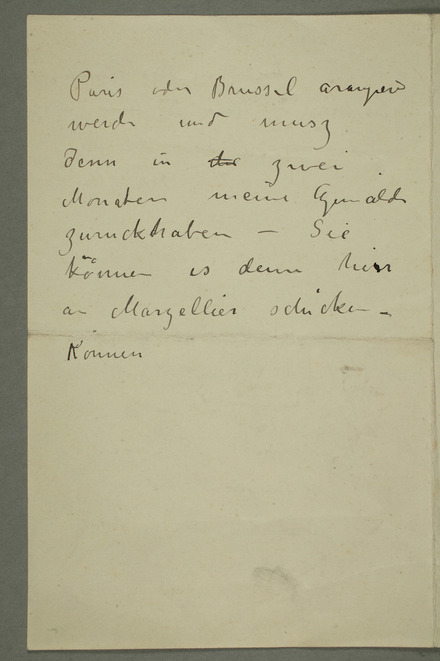 Paris oder Brussel arangiere
werde und musz
denn in zwei
Monaten meine Gemälde
zuruckhaben – Sie
können es denn hier
an Marzellier schicken –
Können